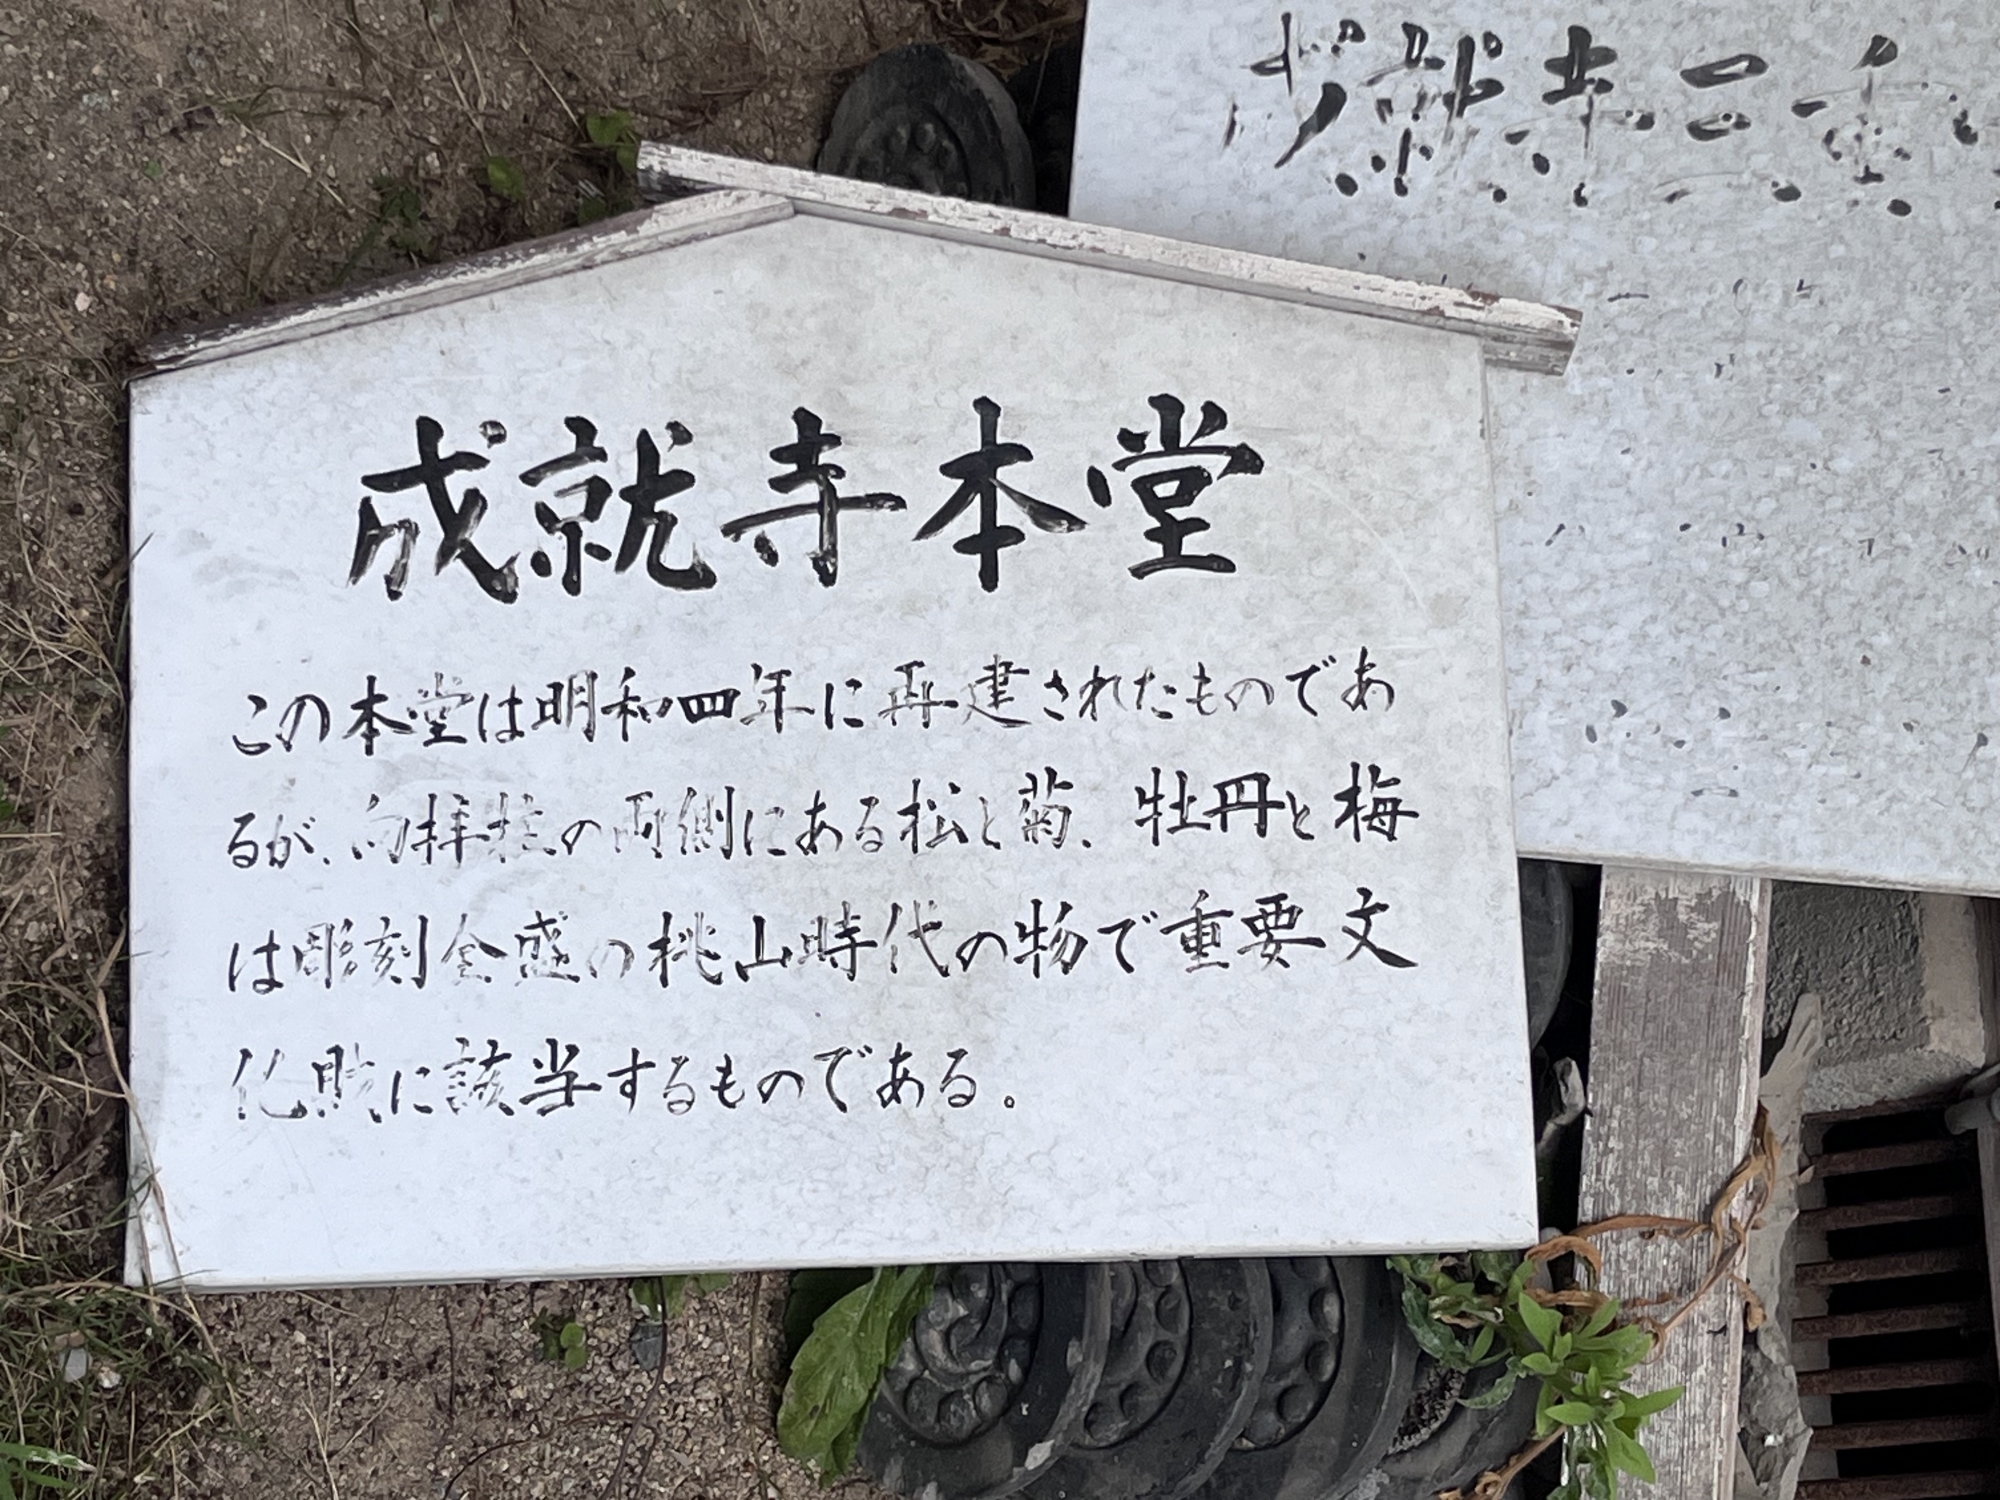 成就寺本堂
この本堂は明和四年に再建されたものであ
るが、向拝柱の両側にある松と菊、牡丹と梅
は彫刻全盛の桃山時代の物で重要文
化財に該当するものである。